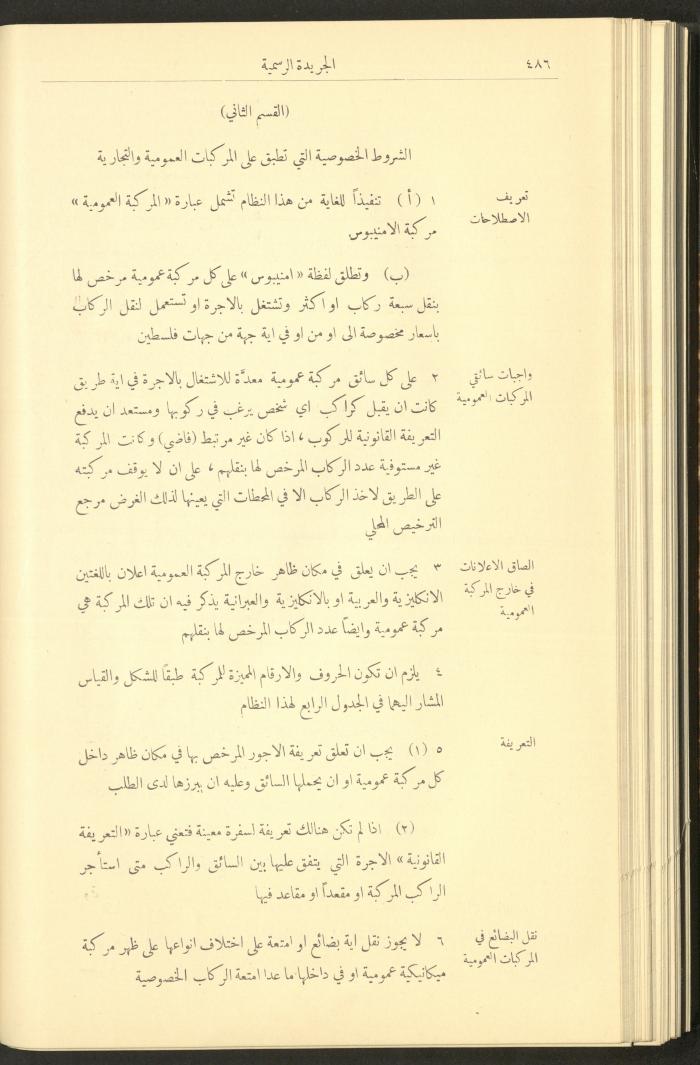 ٤٨٦
الجريدة الرسمية
(القسم الثاني)
الشروط الخصوصية التي تطبق على المركبات العمومية والتجارية
تعريف
الاصطلاحات
١ (أ) تنفيذاً للغاية من هذا النظام تشمل عبارة «المركبة العمومية»
مركبة الامنيبوس
(ب) وتطلق لفظة «امنيبوس» على كل مركبة عمومية مرخص لها
بنقل سبعة ركاب او اكثر وتشتغل بالاجرة او تستعمل لنقل الركاب
باسعار مخصوصة الى او من او في اية جهة من جهات فلسطين
واجبات سائقي
المركبات العمومية
٢ على كل سائق مركبة عمومية معدَّة للاشتغال بالاجرة في اية طريق
كانت ان يقبل كراكب اي شخص يرغب في ركوبها ومستعد ان يدفع
التعريفة القانونية للركوب ، اذا كان غير مرتبط (فاضي) وكانت المركبة
غير مستوفية عدد الركاب المرخص لها بنقلهم ، على ان لا يوقف مركبته
على الطريق لاخذ الركاب الا في المحطات التي يعينها لذلك الغرض مرجع
الترخيص المحلي
الصاق الاعلانات
في خارج المركبة
العمومية
٣ يجب ان يعلق في مكان ظاهر خارج المركبة العمومية اعلان باللغتين
الانكليزية والعربية او بالانكليزية والعبرانية يذكر فيه ان تلك المركبة هي
مركبة عمومية وايضاً عدد الركاب المرخص لها بنقلهم
٤ يلزم ان تكون الحروف والارقام المميزة للمركبة طبقاً للشكل والقياس
المشار اليهما في الجدول الرابع لهذا النظام
التعريفة
٥ (١) يجب ان تعلق تعريفة الاجور المرخص بها في مكان ظاهر داخل
كل مركبة عمومية او ان يحملها السائق وعليه ان يبرزها لدى الطلب
(٢) اذا لم تكن هنالك تعريفة لسفرة معينة فتعني عبارة «التعريفة
القانونية» الاجرة التي يتفق عليها بين السائق والراكب متى استأجر
الراكب المركبة او مقعداً او مقاعد فيها
نقل البضائع في
المركبات العمومية
٦ لا يجوز نقل اية بضائع او امتعة على اختلاف انواعها على ظهر مركبة
ميكانيكية عمومية او في داخلها ما عدا امتعة الركاب الخصوصية